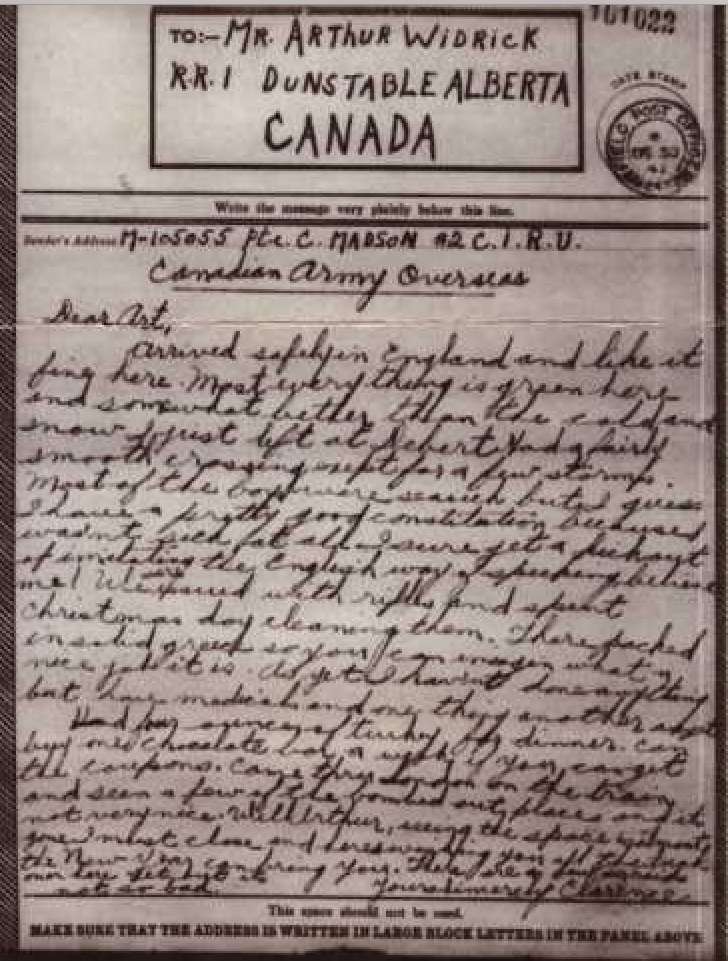 101022
TO:- MR. ARTHUR WIDRICK
R.R.1 DUNSTABLE ALBERTA
CANADA
DATE STAMP
POST OFFICE
Write the message very plainly below this line.
Sender's Address M-105055 Pte. C. MADSON #2 C.I.R.U.
Canadian Army Overseas
Dear Art,
Arrived safely in England and like it
fine here. Most everything is green here
and somewhat better than the cold and
snow I just left at Debert. Had a fairly
smooth crossing except for a few storms.
Most of the boys were seasick but I guess
I have a pretty good constitution because I
wasn't sick at all. I sure get a
of imitating the English way of speaking behind
me! We issued with rifles and spent
Christmas day cleaning them. There packed
in solid grease so you can imagin what a
nice job it is. As yet I haven't done anything
but have medicals and one thing another
Had turkey for dinner. Can
buy one chocolate bar a week if you can get
the coupons. Came thru London on the train
and seen a few of the bombed out places and it
not very nice. Well Arthur, seeing the space
gone I must close and here's wishing you all the
the New Year can bring you. There are a
our hut but it
not so bad. Yours sincerely Clarence
This space should not be used.
MAKE SURE THAT THE ADDRESS IS WRITTEN IN LARGE BLOCK LETTERS IN THE PANEL ABOVE